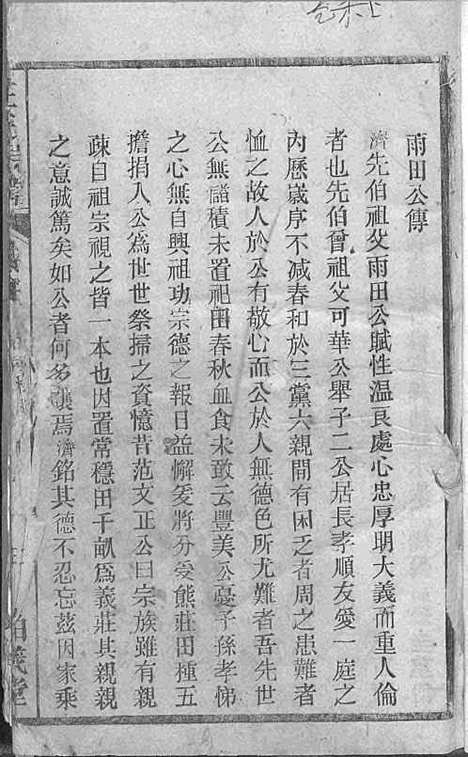 雨田公傳
濟先伯祖父雨田公賦性温良處心忠厚明大義而重人倫
者也先伯曾祖父可華公舉子二公居長孝順友愛一庭之
內歷歲序不减春和於三黨六親間有困乏者周之患難者
恤之故人於公有敬心而公於人無德色所尤難者吾先世
公無諸積未置祀田春秋血食未敢云豐美公憂子孫孝悌
之心無自興祖功宗德之報日益懈爰將分受熊莊田種五
擔捐入公爲世世祭掃之資憶昔范文正公曰宗族雖有親
疎自祖宗視之皆一本也因置常穩田千畝爲義莊其親親
之意誠篤矣如公者何多讓焉濟銘其德不忍忘茲因家乘